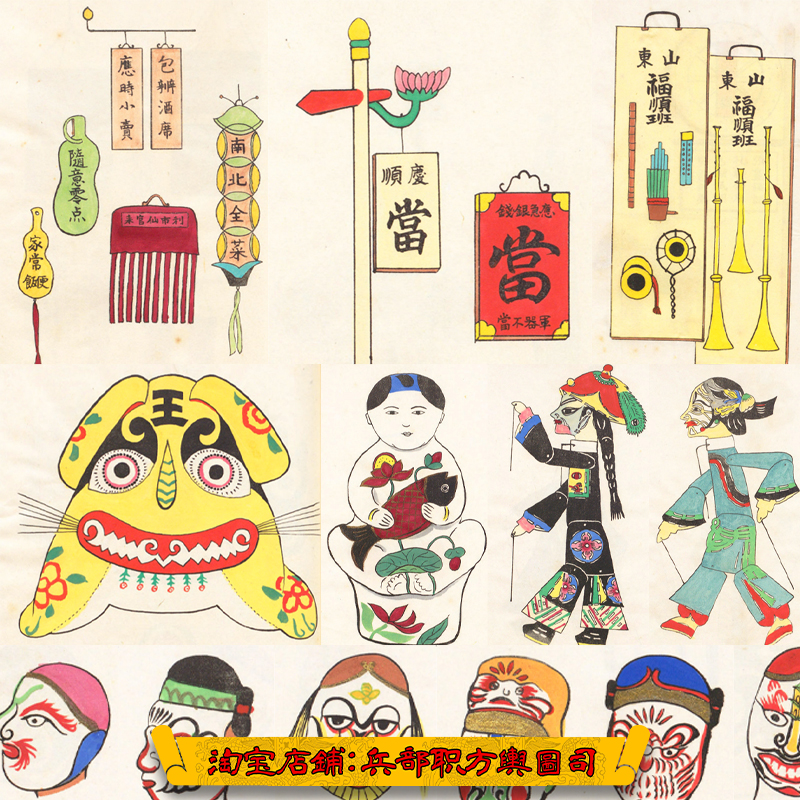 包辦酒席
應時小賣
隨意零点
家常便飯
南北全菜
利市仙官来
慶順
當
應急銀錢
當
軍器不當
山東
福順班
山東
福順班
王
淘宝店鋪:兵部职方輿圖司